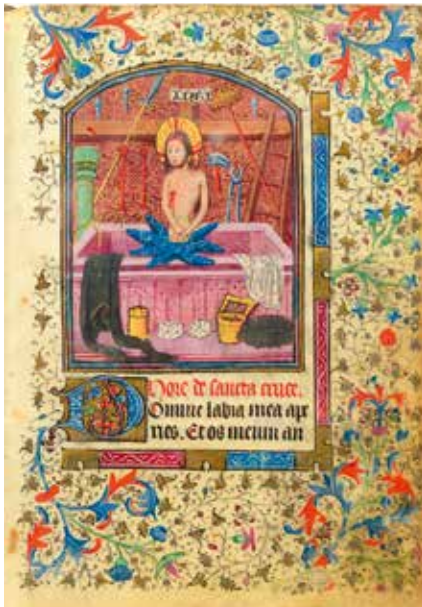 Hore de sancta cruce.
Domine labia mea ape
ries. Et os meum an